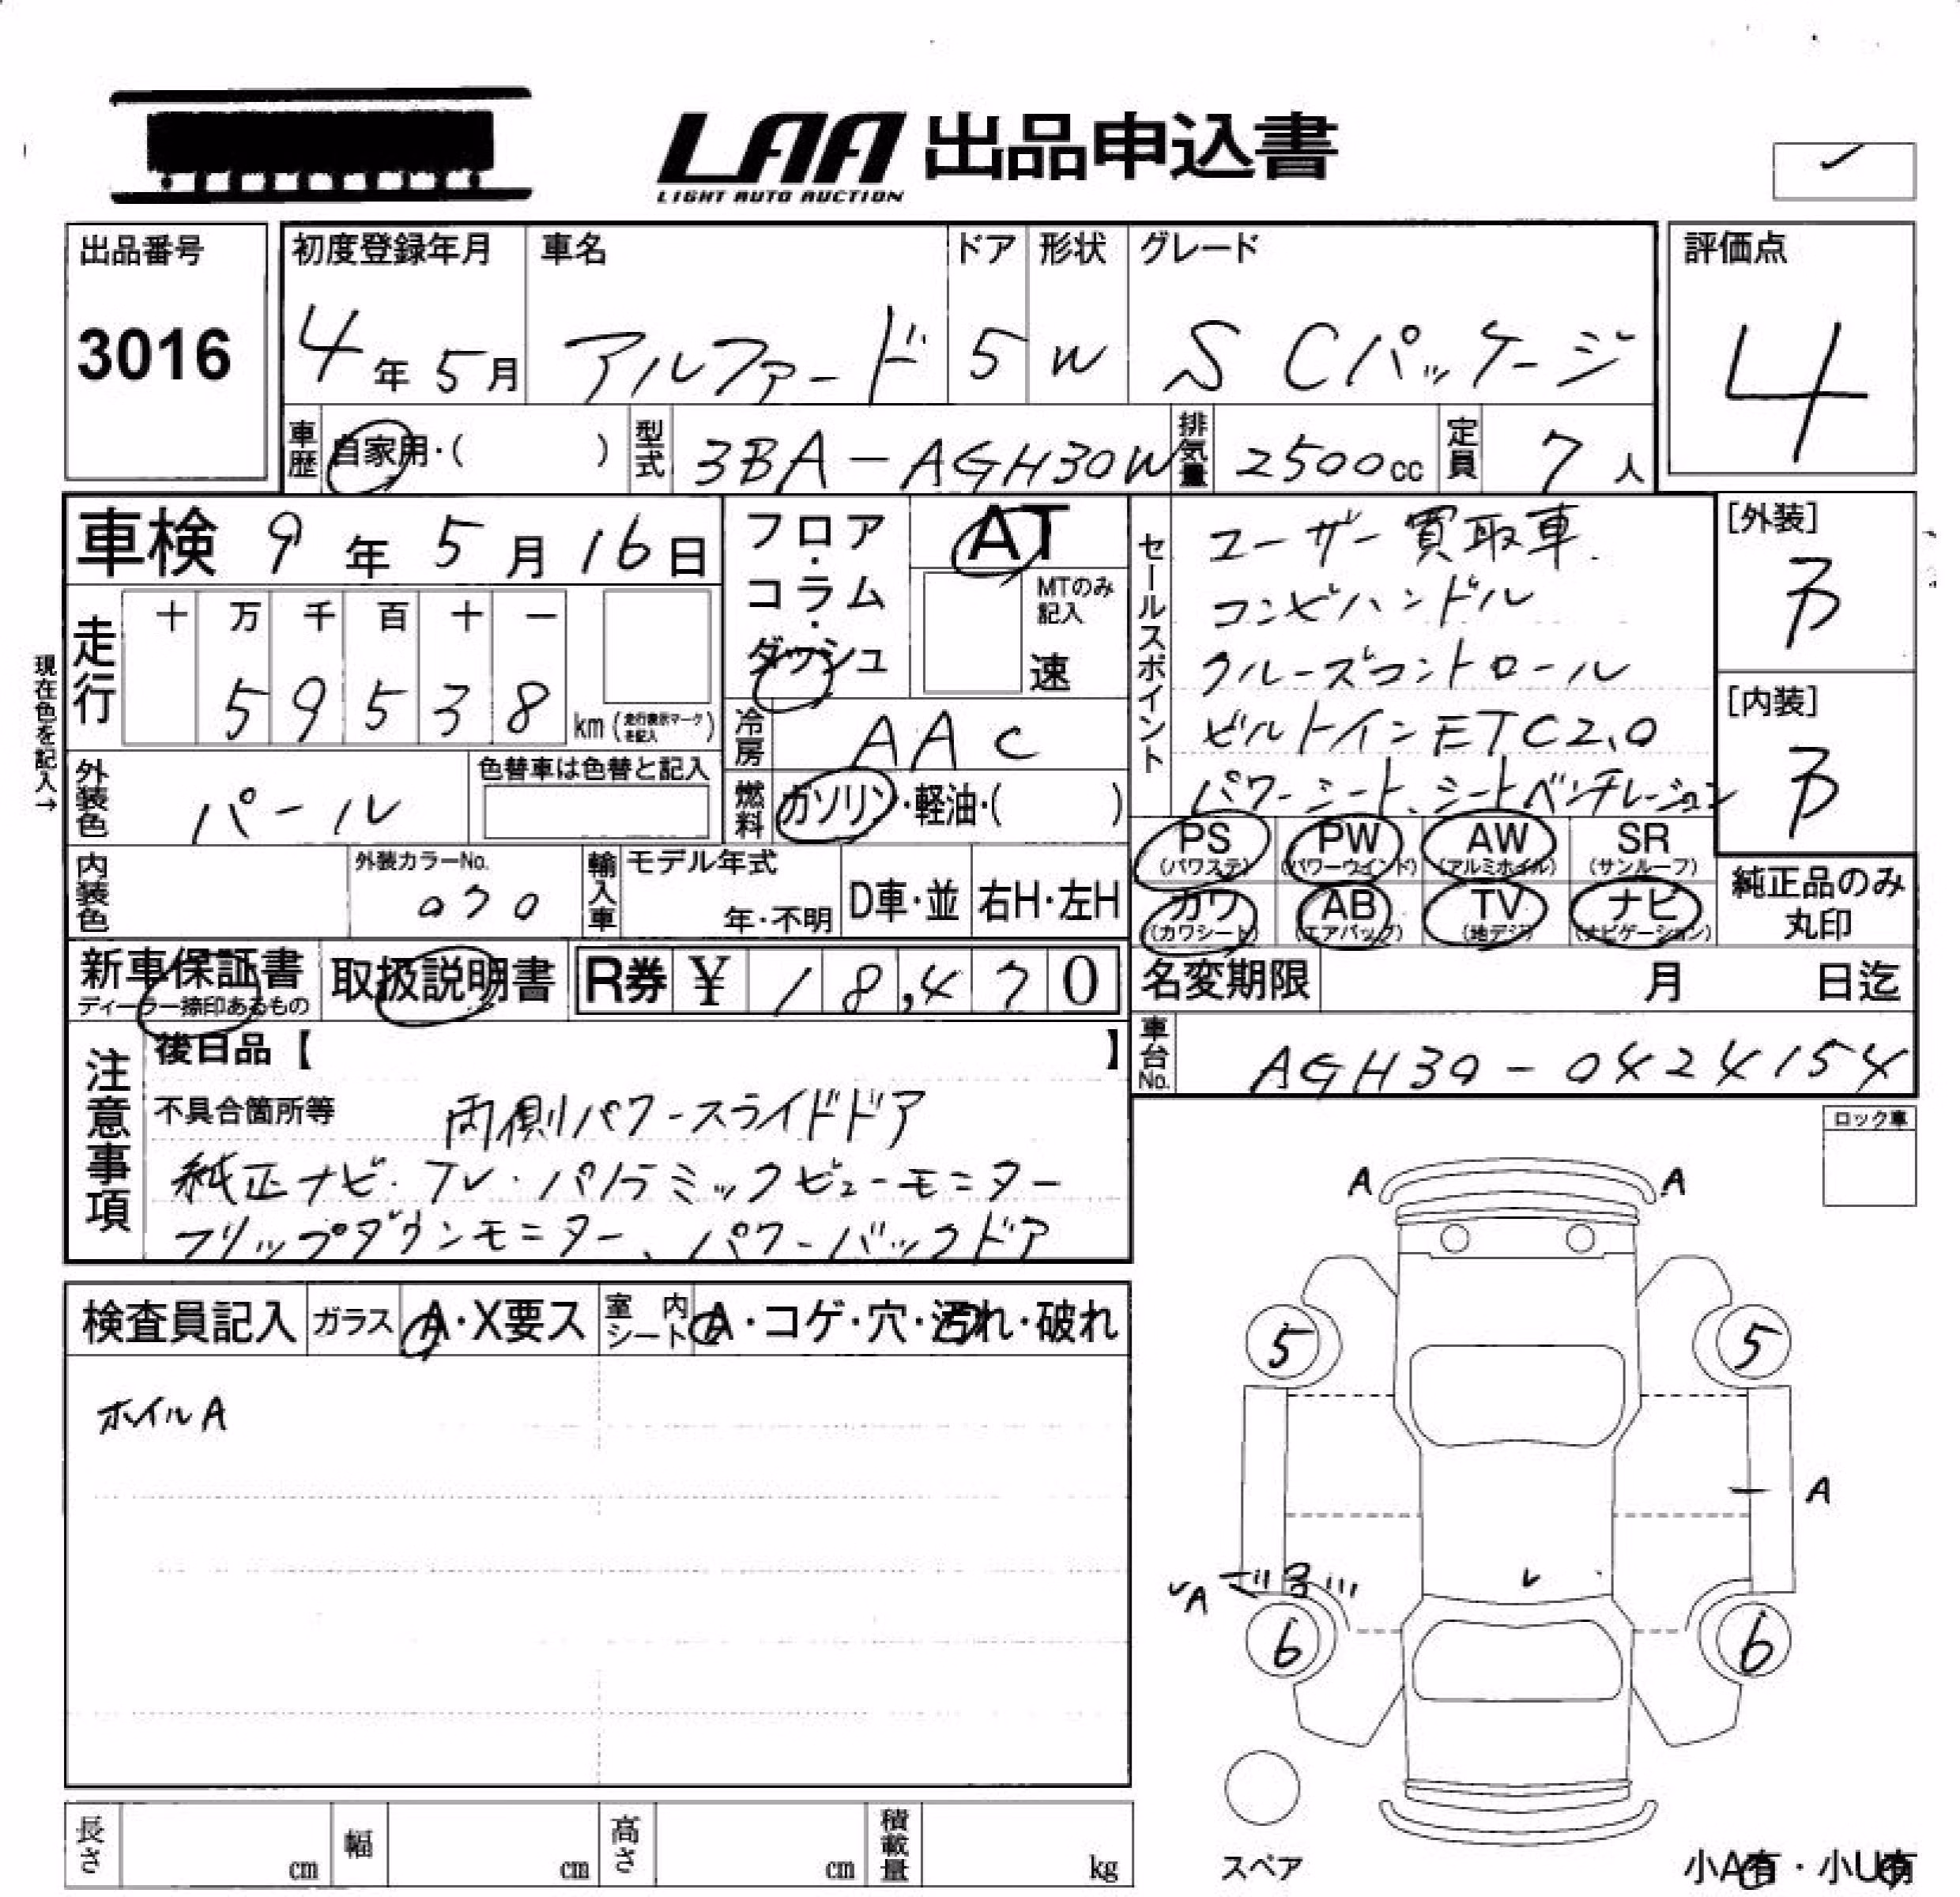 LAA 出品申込書
LIGHT AUTO AUCTION
出品番号
3016
初度登録年月
4年5月
車名
アルファード
ドア
5
形状
W
グレード
S Cパッケージ
評価点
4
車歴
自家用・( )
型式
3BA-AGH30W
排気量
2500cc
定員
7人
車検 9年5月16日
フロア・コラム・ダッシュ
AT
MTのみ記入
速
セールスポイント
ユーザー買取車.
コンビハンドル
クルーズコントロール
ビルトインETC2.0
パワーシート、シートベンチレーション
[外装]
B
[内装]
B
現在色を記入→
走行
十 万 千 百 十 一
5 9 5 3 8
km(走行表示マークを記入)
冷房
AAC
外装色
パール
色替車は色替と記入
燃料
ガソリン・軽油・( )
PS (パワステ)
PW (パワーウインド)
AW (アルミホイル)
SR (サンルーフ)
カワ (カワシート)
AB (エアバック)
TV (地デジ)
ナビ (ナビゲーション)
純正品のみ丸印
内装色
外装カラーNo.
070
輸入車
モデル年式
年・不明
D車・並
右H・左H
新車保証書
ディーラー捺印あるもの
取扱説明書
R券 ¥ 18,470
名変期限 月 日迄
車台No.
AGH30-0424154
注意事項
後日品【 】
不具合箇所等 両側パワースライドドア
純正ナビ・TV・パノラミックビューモニター
フリップダウンモニター、パワーバックドア
ロック車
検査員記入
ガラス
A・X要ス
室内シート
A・コゲ・穴・汚れ・破れ
ホイルA
A A
5 5
A
6 6
スペア
長さ cm
幅 cm
高さ cm
積載量 kg
小A有・小U有